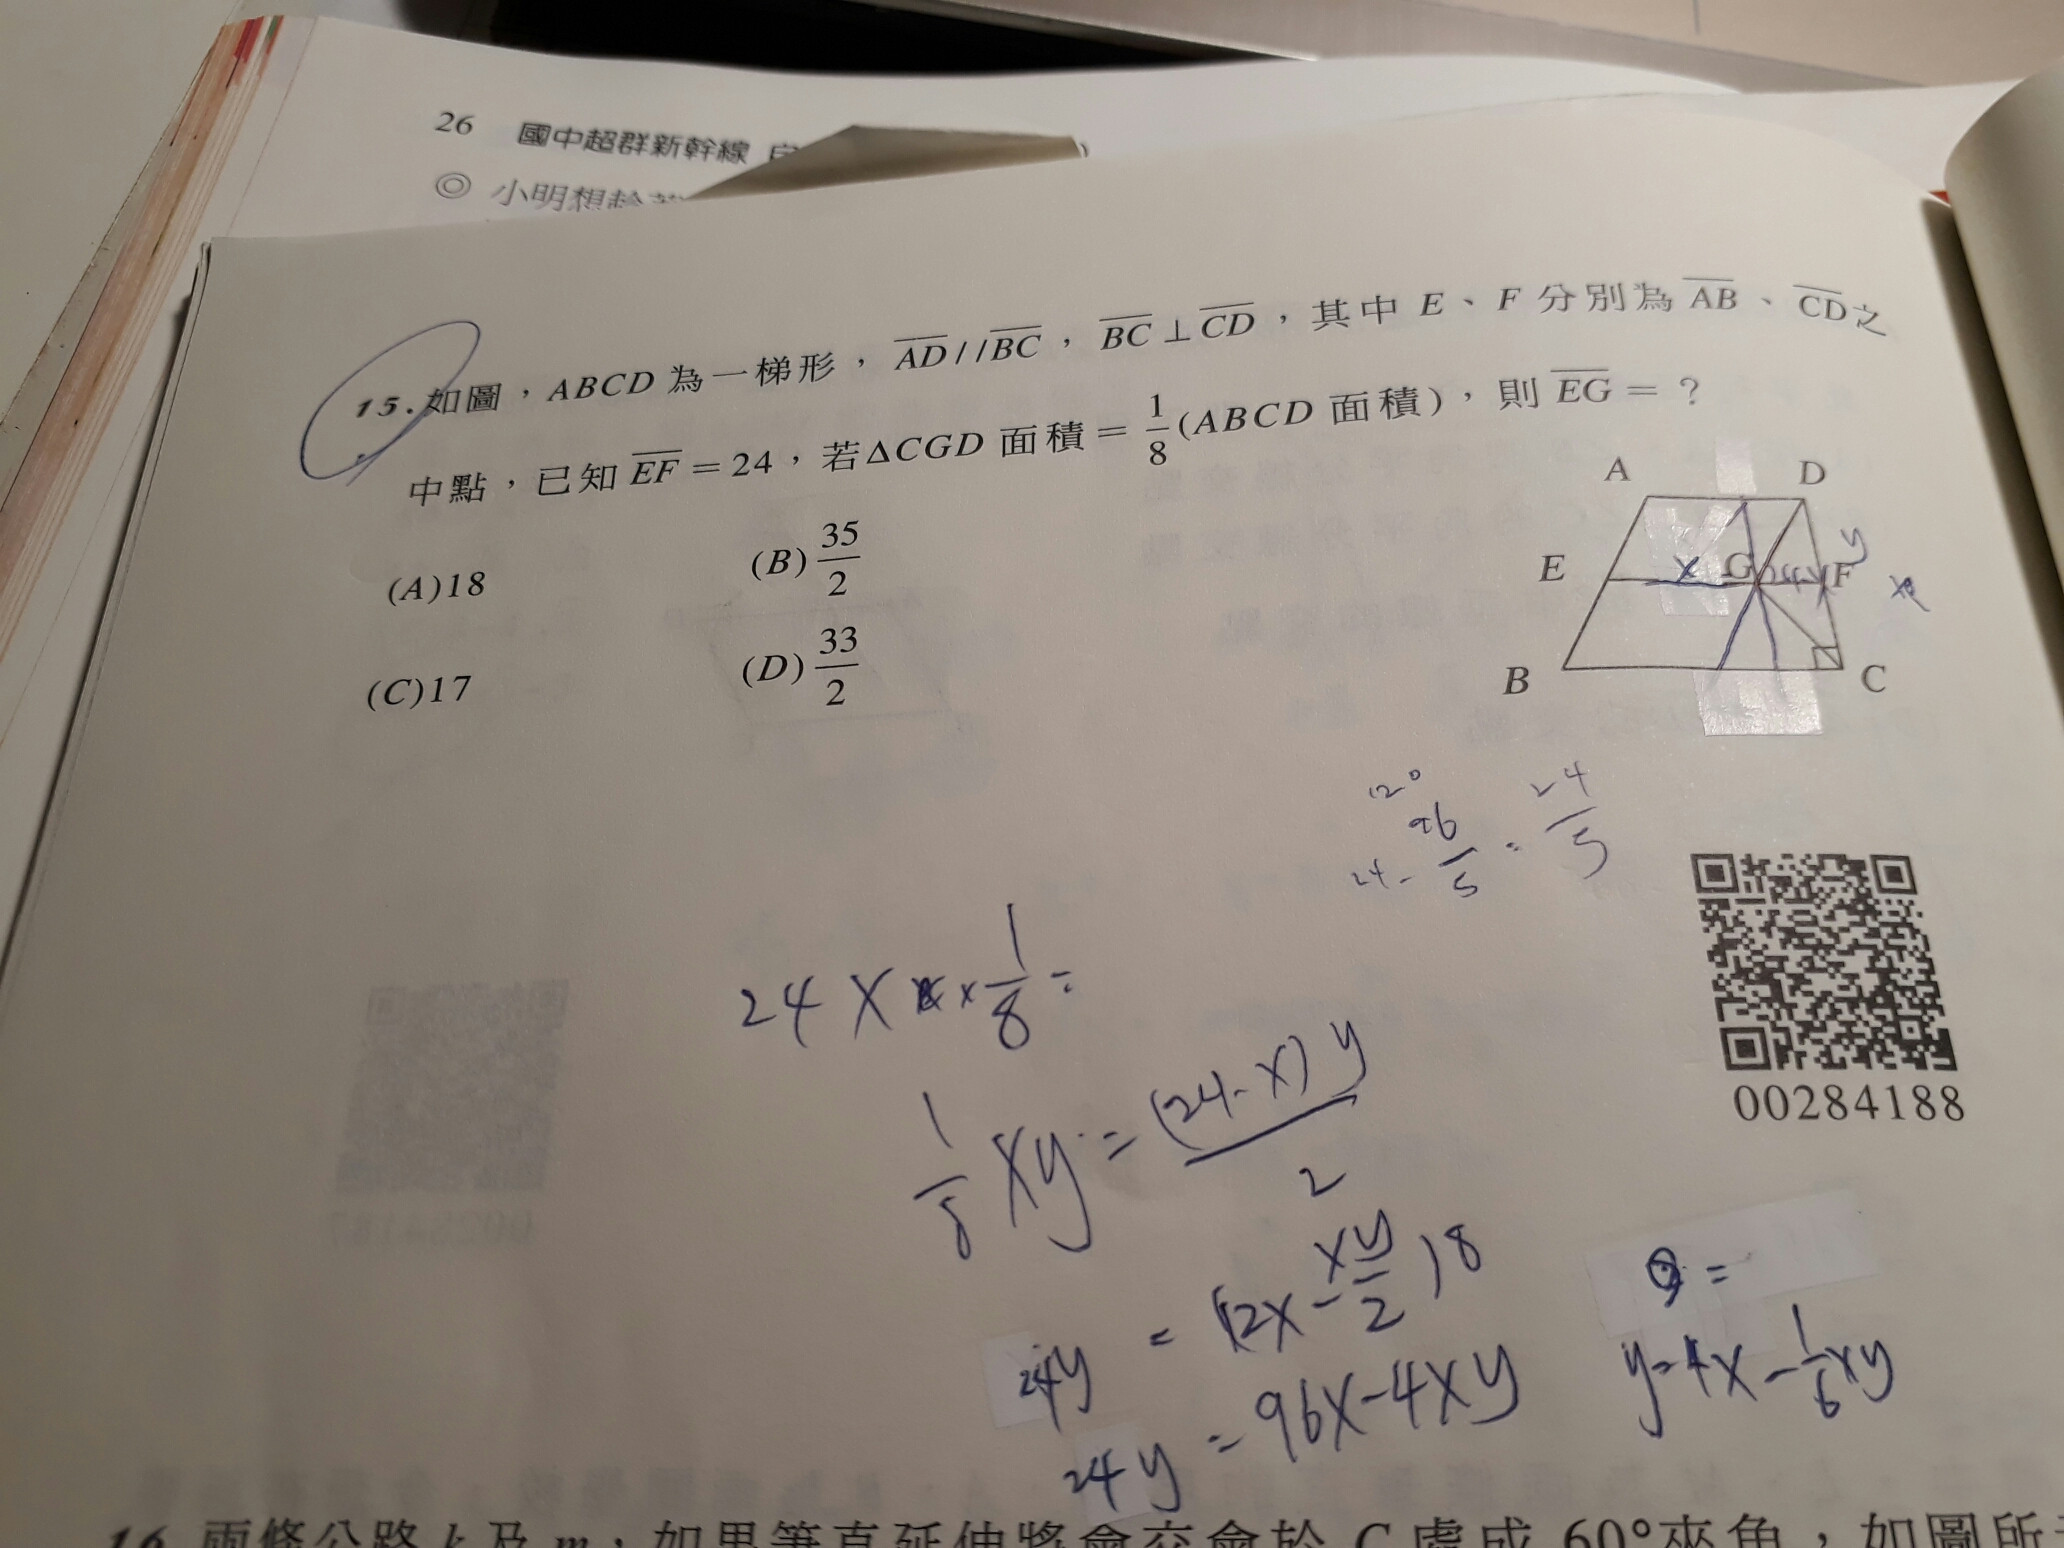 26 國中超群新幹線
◎ 小明想
15.如圖，ABCD 為一梯形，AD//BC，BC⊥CD，其中 E、F 分別為 AB、CD之
中點，已知 EF＝24，若ΔCGD 面積＝1/8(ABCD 面積)，則 EG＝？
(A)18 (B)35/2
(C)17 (D)33/2
A D
E X G F y
B C
24 - 96/5 = 24/5
24 X × 1/8 =
1/8 xy = (24-x)y/2
24y = (12x - xy/2)8
24y = 96x-4xy
y=4x-1/6xy
00284188
16 兩條公路 k 及 m，如果筆直延伸將會交會於 C 處成 60°夾角，如圖所